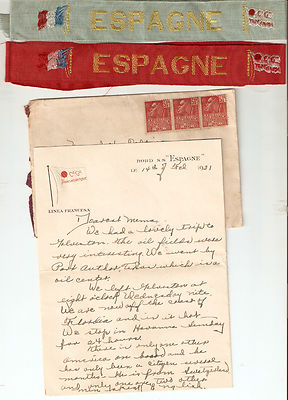 ESPAGNE
ESPAGNE
BORD S.S. "ESPAGNE"
LE 14th of Feb 1931
LINEA FRANCESA
Dearest Mema,
We had a lovely trip to
Galveston. The oil fields were
very interesting. We went by
Port Author, Texas which is a
oil center.
We left Galveston at
eight o'clock Wednesday nite.
We are now off the coast of
Florida and is it hot.
We stop in Havanna Sunday
for 24 hours.
There is only one other
American on board and he
has only been a citizen several
months. He is from
and only one or two other
men speak English.